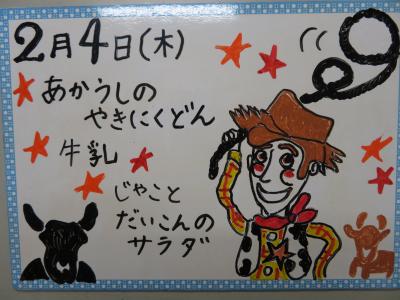 2月4日(木)
あかうしの
やきにくどん
牛乳
じゃこと
だいこんの
サラダ